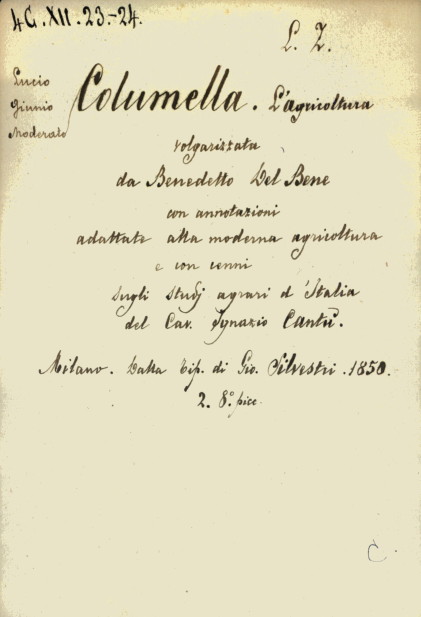 4C.XII.23.-24.
L. Z.
Lucio
Giunio
Moderato
Columella. L'agricoltura
volgarizzata
da Benedetto Del Bene
con annotazioni
adattate alla moderna agricoltura
e con cenni
sugli studj agrari d'Italia
del Cav. Ignazio Cantù.
Milano. Dalla Tip. di Gio. Silvestri. 1850.
2. 8.° picc.
C.